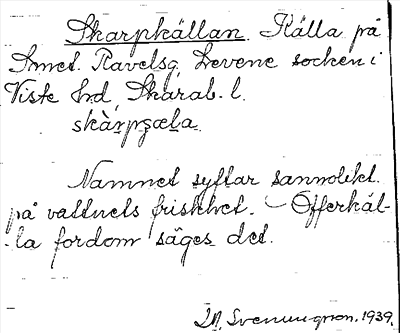 Skarpkällan. Källa på
Smet. Ravelsg, Levene socken i
Viste hd, Skarab. l.
skàrpʂæla.
Namnet syftar sannolikt
på vattnets friskhet. – Offerkäl-
-la fordom säges det.
Svenungson. 1939.